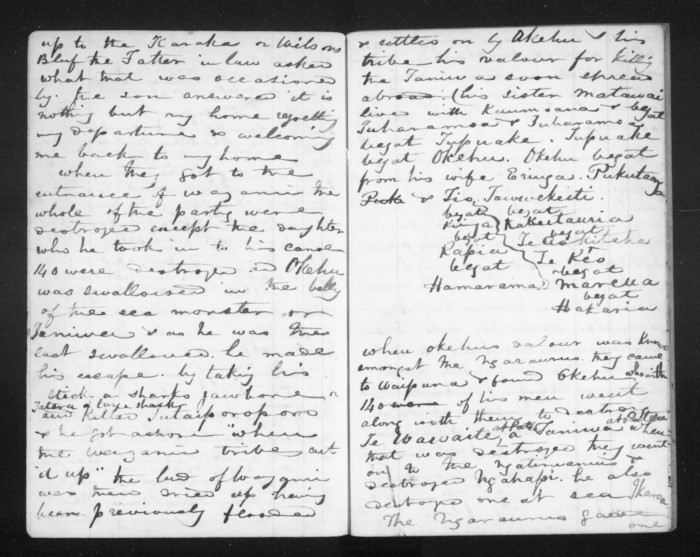 up to the Karaka or Wilsons
Bluf the Father in law asked
what that was occationed
by. the son answered it is
nothing but my home regretting
my departure & welcoming
me back to my home
when they got to the
entrance of
whole of the party were
destroyed except the daughter
who he took in to his canoe
140 were destroyed and Okehu
was swallowed in the belly
of the sea monster or
Taniwa & as he was the
last swallowed. he made
his escape. by taking his
stick a sharks jawbone
Tatera a large shark
and killed
& he got ashore "when
the tribe cut
it up" the land of
was then dried up having
been previously flooded
& settles on by Okehu & his
tribe his valour for killing
the Taniwa soon spread
abroad. (his sister Matawai
lives with & begat
Tuharamoa & Tuharamoa
begat Tupuake. Tupuake
begat Okehu. Okehu begat
from his wife
& Tio.
begat begat
begat begat
Rapia
begat Te Reo
begat
Hamarama
begat
Hakaria
when okehus valour was known
amongst the Ngaraurus. they came
to Waipuna & found Okehu who with
140 were of his men went
along with them to destroy
Te a Taniwa when
that was destroyed they went
on to the &
destroyed Ngahapi. he also
destroyed one at sea
The Ngaraurus gave
one